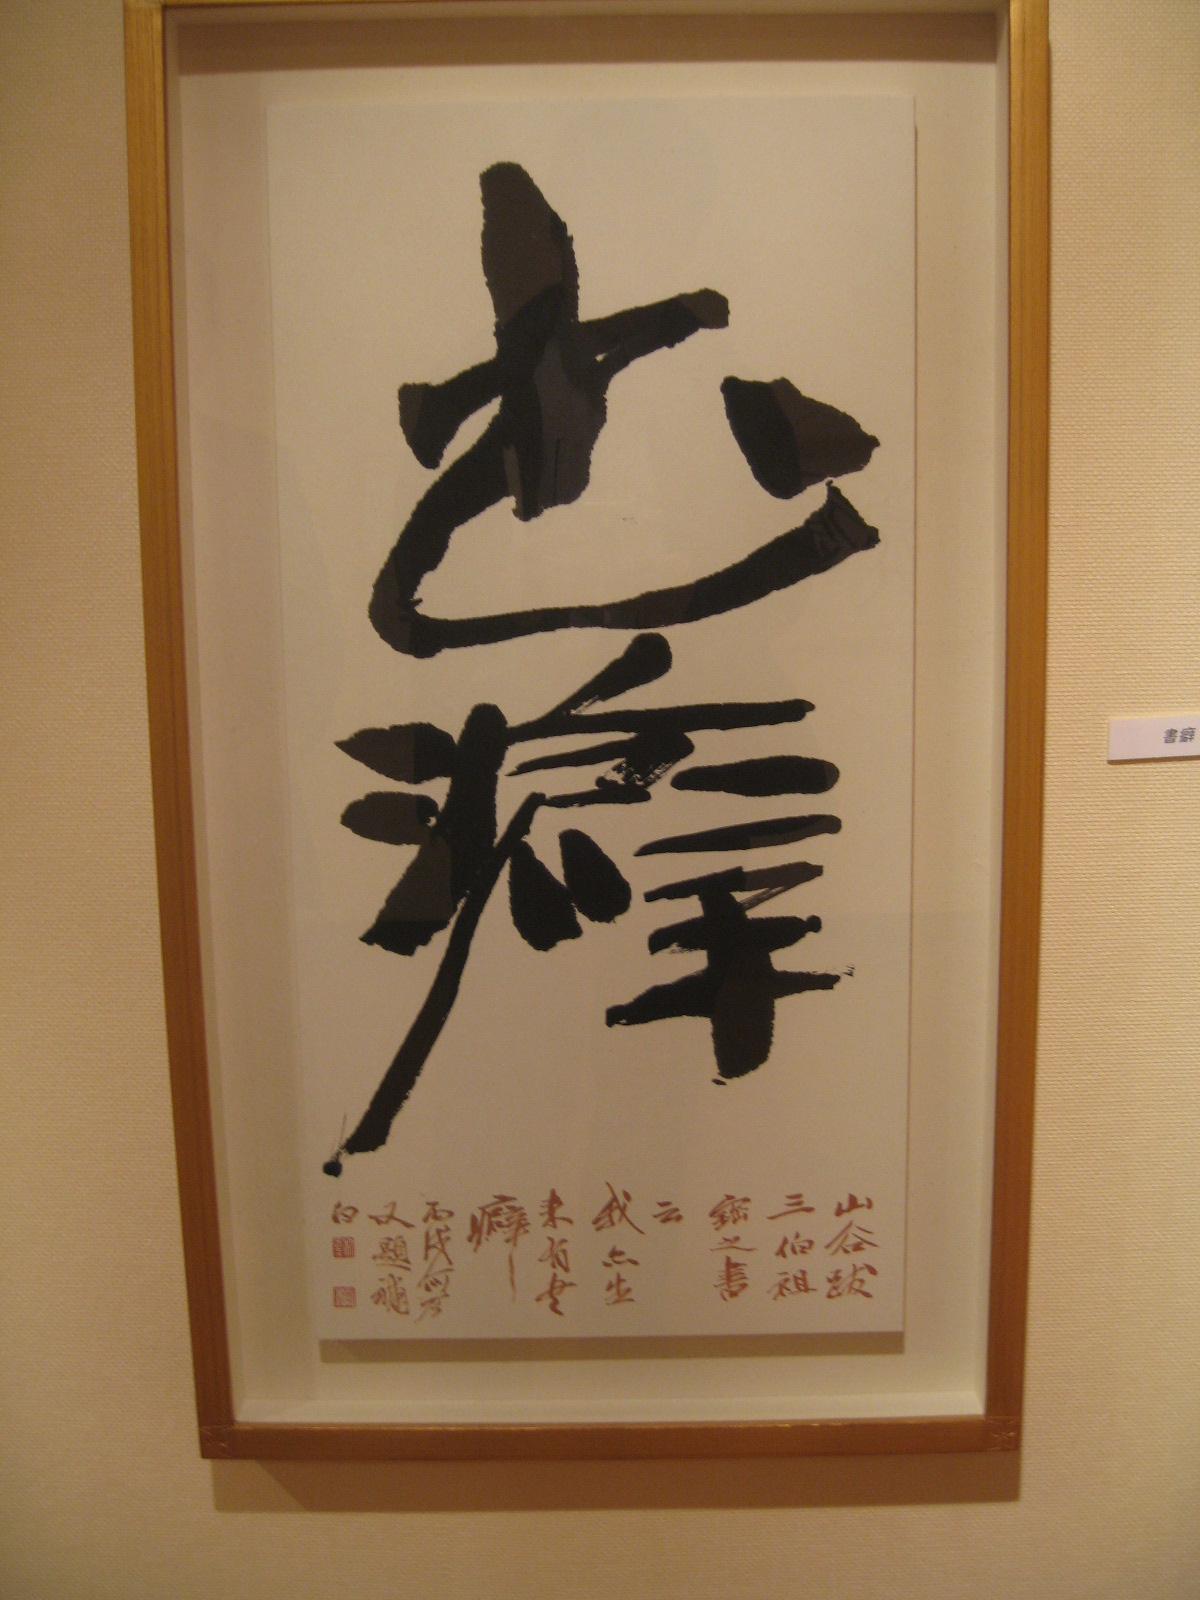 書癖
山谷跋
三伯祖
寶之書
云
我亦生
来有書
癖
丙戌
又題
白
書癖